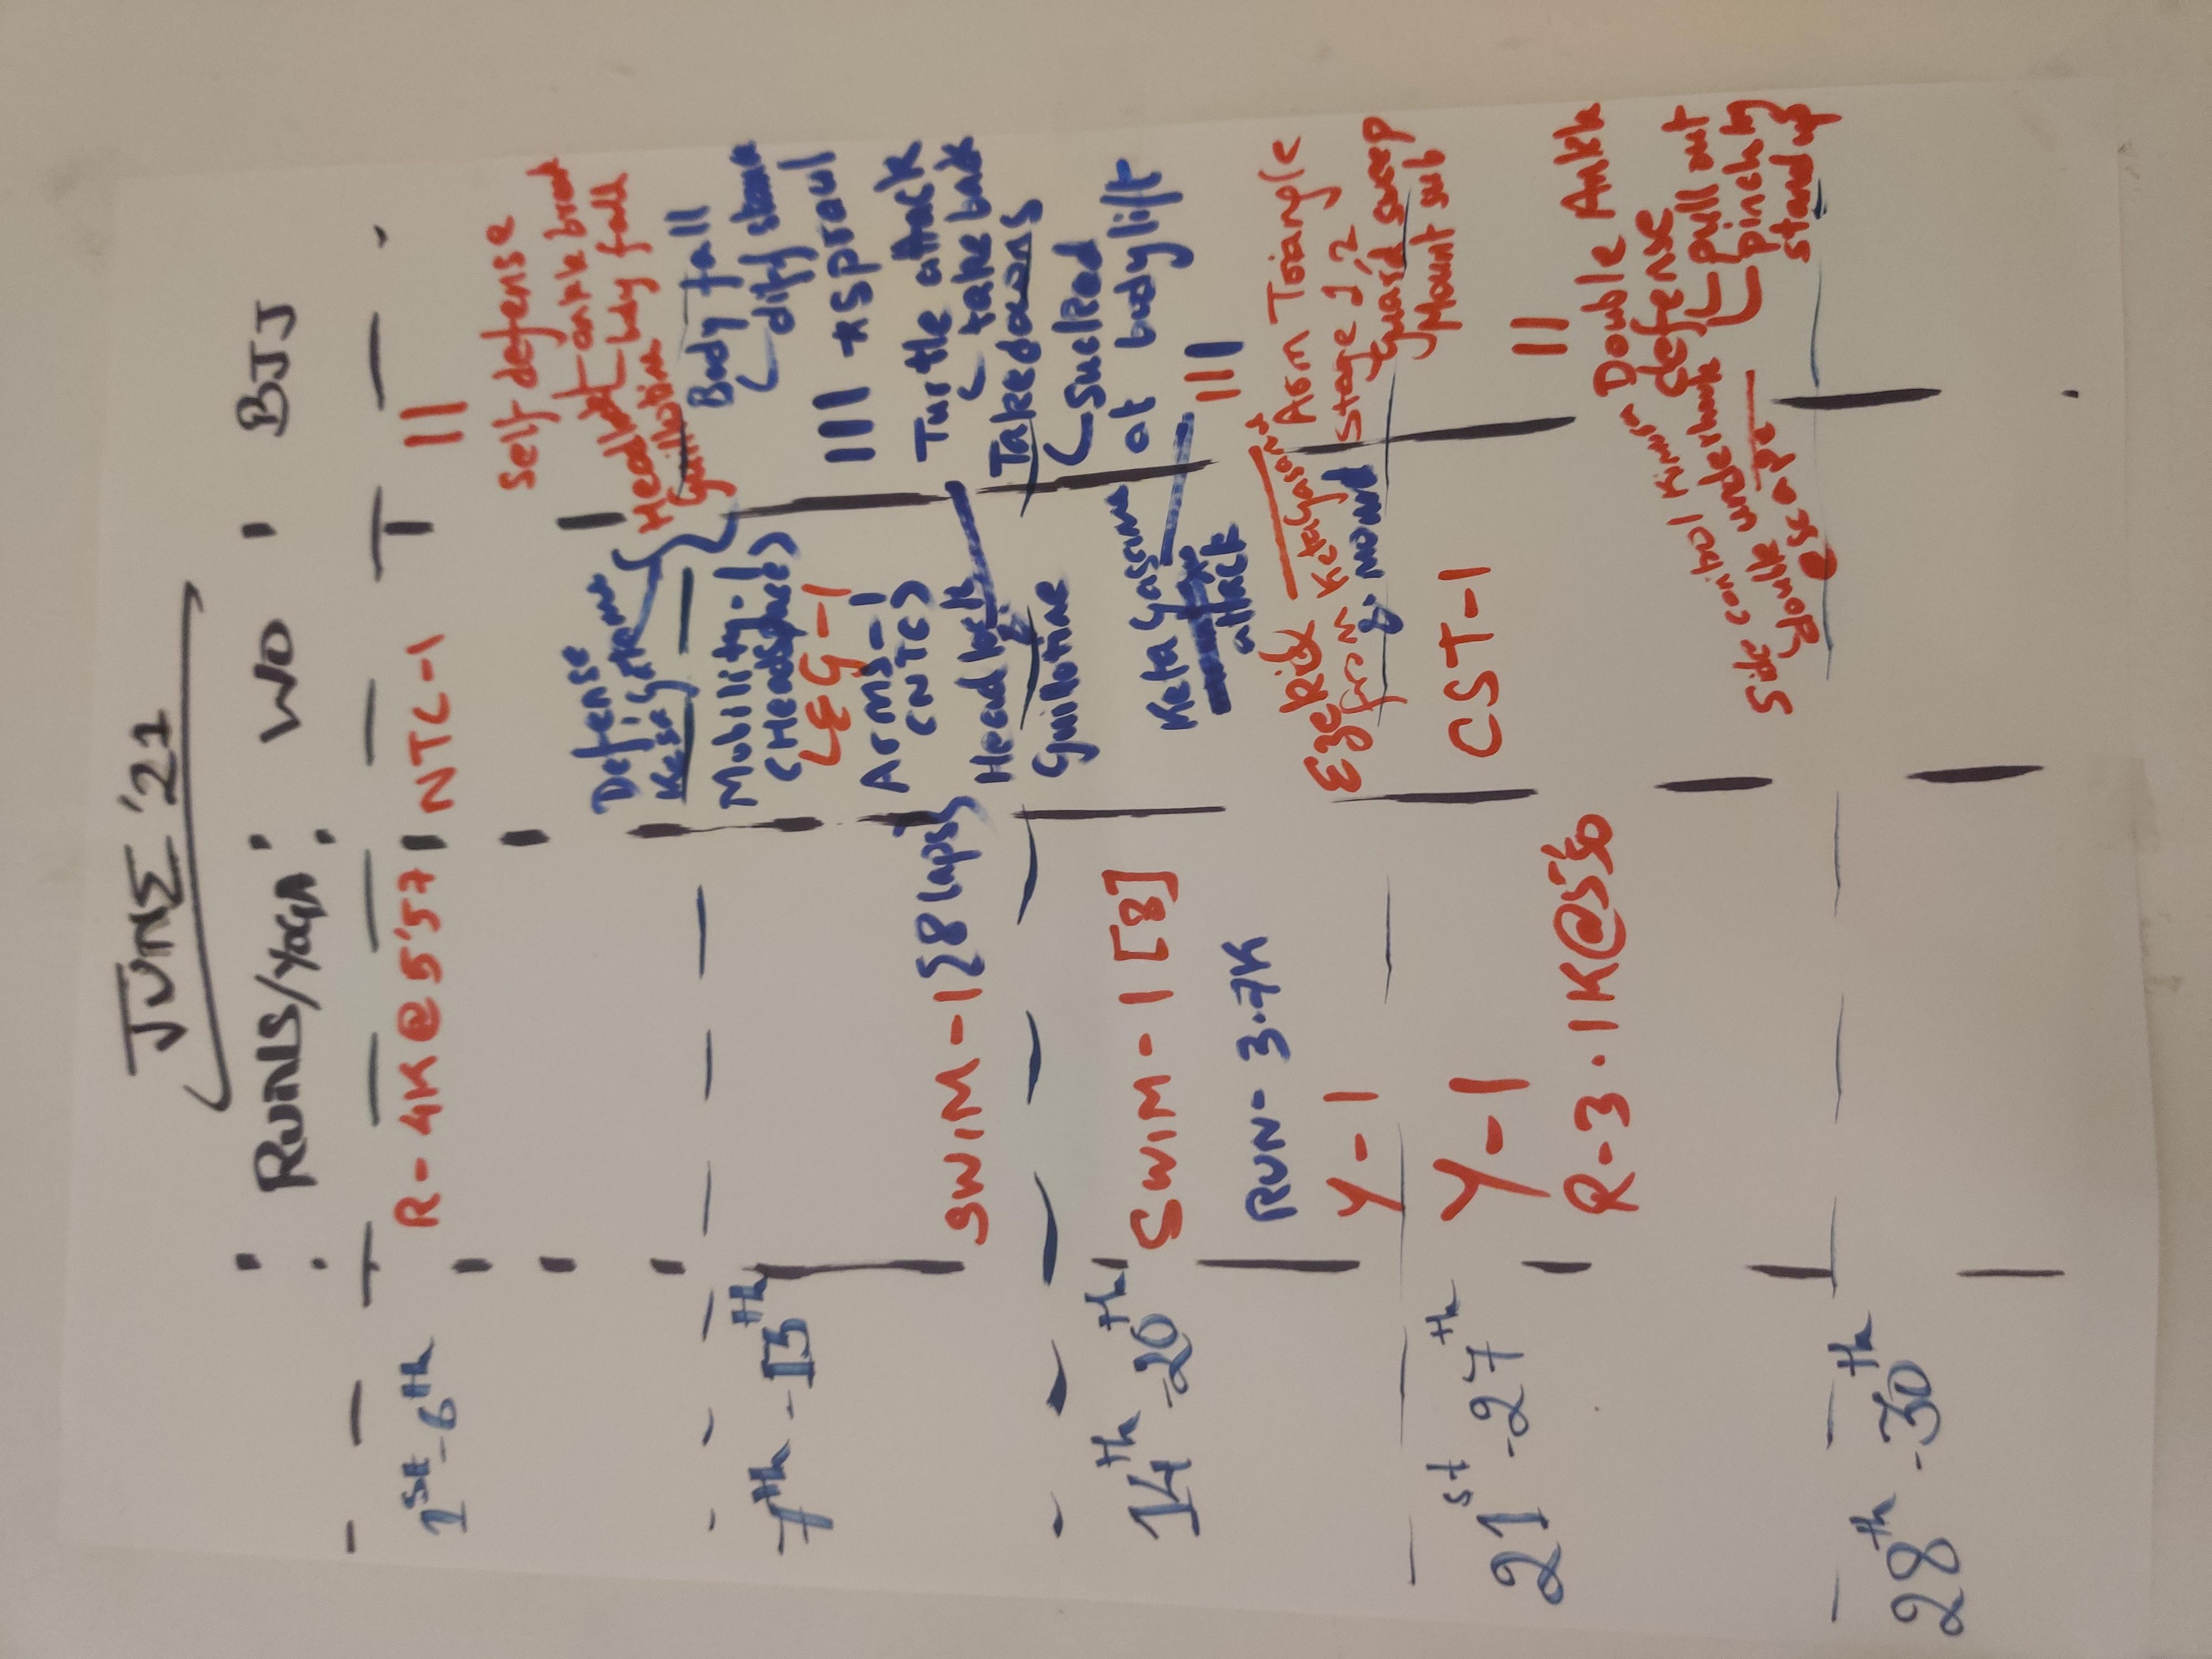 JUNE '21
RUNS/YOGA WO BJJ
1st-6th R-4K@5'57 NTC-1 II
Self defense
Headlock ankle break
body fall
Guillotine
Defense
Kesa Gatame
7th-13th
Mobility-1
(Headspace)
LEG-1
Arms-1
(NTC)
SWIM-1{8 laps}
Headlock
&
Guillotine
Body fall
diff stance
III *sprawl
Turtle attack
take back
Takedowns
Sucked
at body lift
14th-20th SWIM-1[8]
RUN-3.7K
Y-1
Keta Gasama
attack
Ezekiel
from KetaGasana
& mount
III
Arm Triangle
stage 1,2
Guard sweep
Mount sub
21st-27th Y-1 CST-1
R-3.1K@5'50
II
Double Ankle
defense
pull out
pinch leg
stand up
Side control Kimura
double underhook
escape
28th-30th